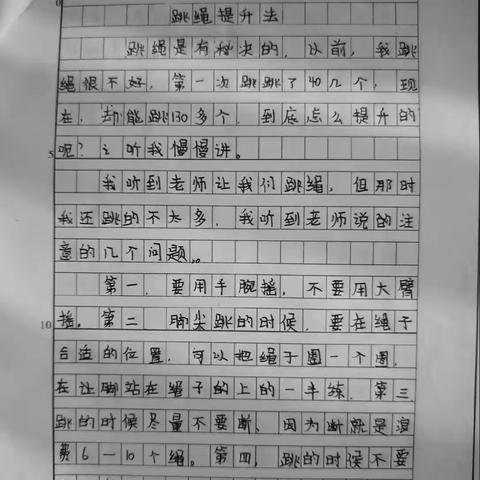 0
跳绳提升法
跳绳是有秘决的。以前，我跳
绳很不好，第一次跳跳了40几个，现
在，却能跳130多个。到底怎么提升的
5 呢？听我慢慢讲。
我听到老师让我们跳绳，但那时
我还跳的不太多，我听到老师说的注
意的几个问题。
第一，要用手腕摇，不要用大臂
10 摇。第二，脚尖跳的时候，要在绳子
合适的位置，可以把绳子圈一个圈，
在让脚站在绳子的上的一半练。第三，
跳的时候尽量不要断，因为断就是浪
费6一10个绳。第四，跳的时候不要